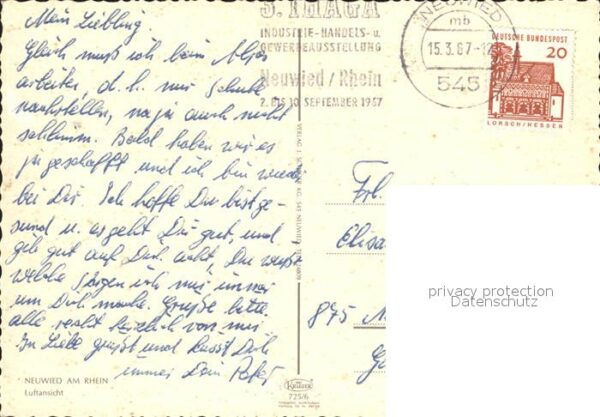 Mein Liebling.
Gleich muß ich beim
arbeiten, d. h. nur Schule
nachstellen, na ja auch nicht
schlimm. Bald haben wir es
ja geschafft und ich bin wieder
bei Dir. Ich hoffe Du bist ge-
sund u. es geht Dir gut, und
gib gut auf Dich acht, Du weißt
welche Sorgen ich mir immer
um Dich mache. Grüße bitte
alle recht herzlich von mir
In Liebe grüßt und küsst Dich
immer Dein Peter
NEUWIED AM RHEIN
Luftansicht
3. IHAGA
INDUSTRIE-HANDELS- u.
GEWERBEAUSSTELLUNG
Neuwied / Rhein
2. BIS 10. SEPTEMBER 1967
NEUWIED
mb
15.3.67-12
545
DEUTSCHE BUNDESPOST
20
LORSCH/HESSEN
Frl.
Elisa
875
privacy protection
Datenschutz
Krüger
725/6